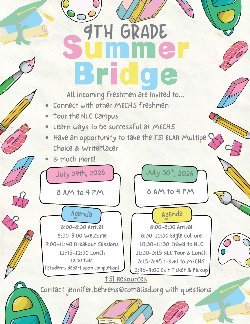 9TH GRADE
Summer
Bridge
All incoming freshmen are invited to...
Connect with other MECHS freshmen
Tour the NLC Campus
Learn ways to be successful at MECHS
Have an opportunity to take the TSI ELAR Multiple
Choice & WritePlacer
& much more!
July 29th, 2026
July 30th, 2026
8 AM to 4 PM
8 AM to 4 PM
Agenda
Agenda
8:00-8:30 Arrival
8:30-9:00 Welcome
9:00-11:40 Breakout Sessions
11:45-12:30 Lunch
8:00-8:30 Arrival
8:30-10:00 Eagle Culture
10:00-10:30 Travel to NLC
10:30-3:15 NLC Tour & Lunch
3:15-3:45 Travel to MECHS
3:45-4:00 Exit Ticket & Pickup
TSI Resources
with questions